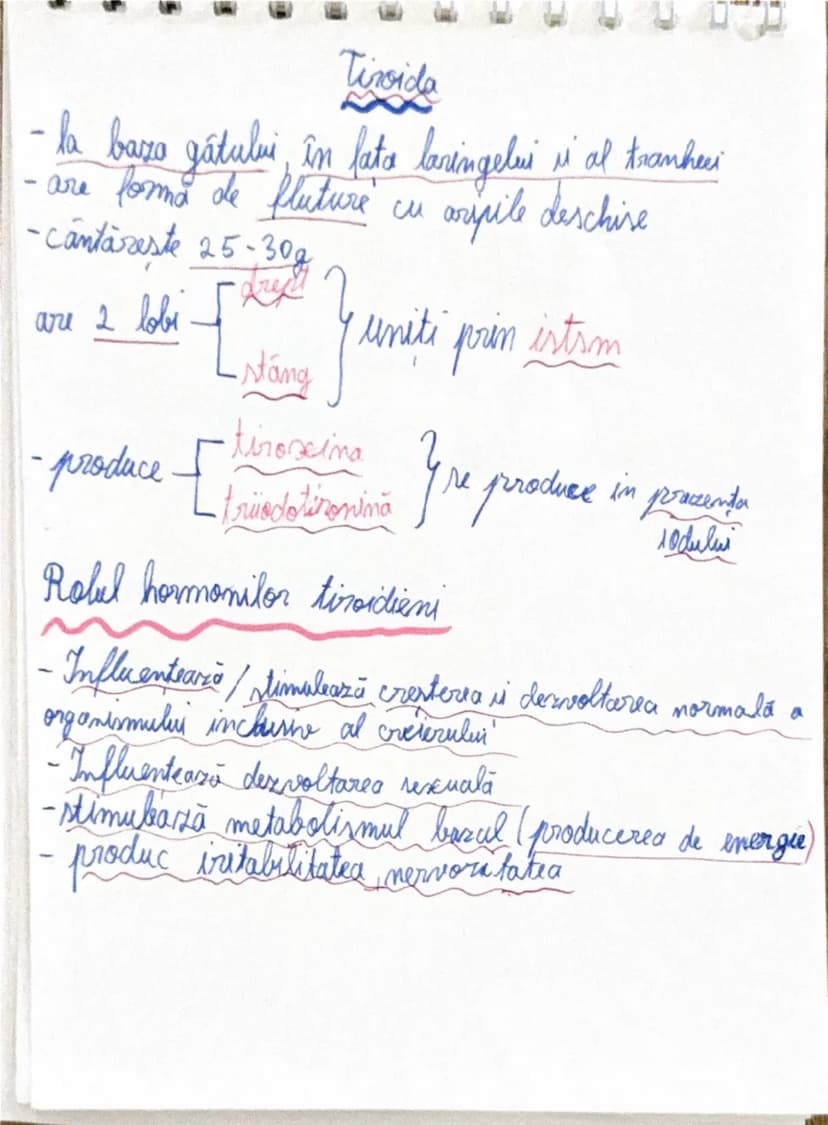 Tiroida
- la baza gâtului, în fata laringelui și al tranheei
- are formă de fluture cu aripile deschise
- cântărește 25-30g
drept
are 2 lobi } uniți prin istsm
stâng
tiroxina
- produce } se produce in prezența
triiodotironină
iodului
Rolul hormonilor tiroidieni
- Influențează / stimulează cresterea si dezvoltarea normală a
organismului inclusiv al creierului
- Influentează dezvoltarea sexuală
- stimulează metabolismul bazal (producerea de energie)
- produc iritabilitatea, nervozitatea